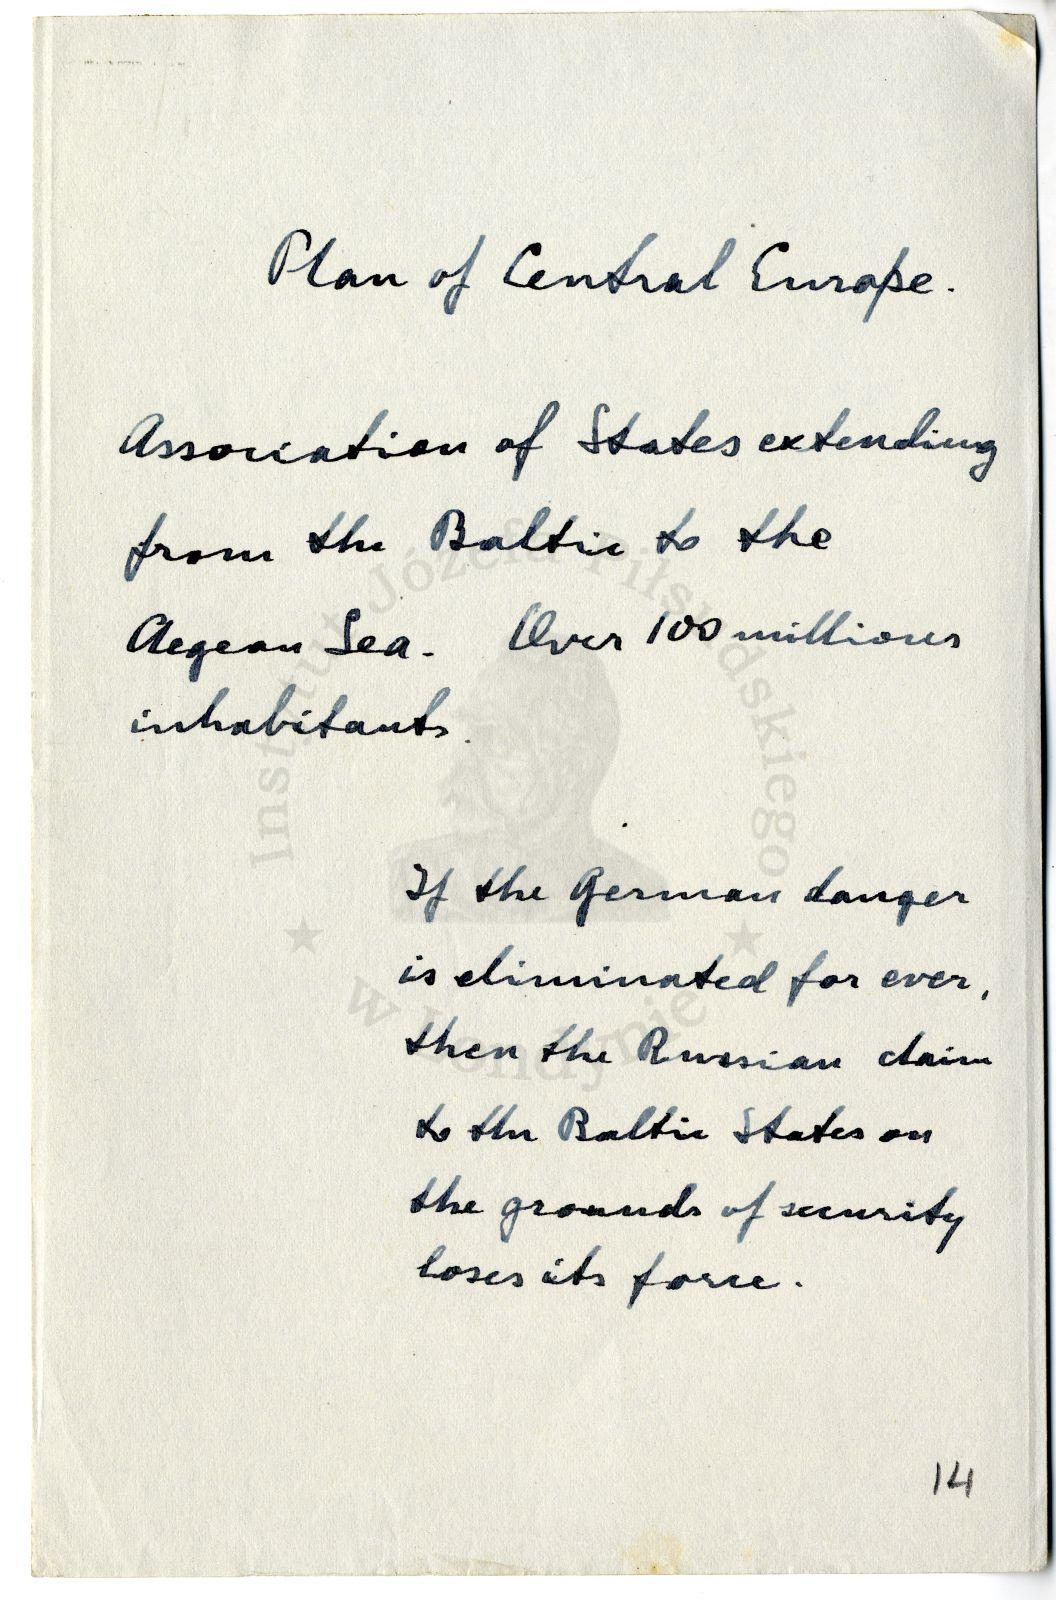 Plan of Central Europe.
Association of States extending
from the Baltic to the
Aegean Sea. Over 100 millions
inhabitants.
If the German danger
is eliminated for ever,
then the Russian claim
to the Baltic States on
the grounds of security
loses its force.
14
Instytut Józefa Piłsudskiego
w Londynie